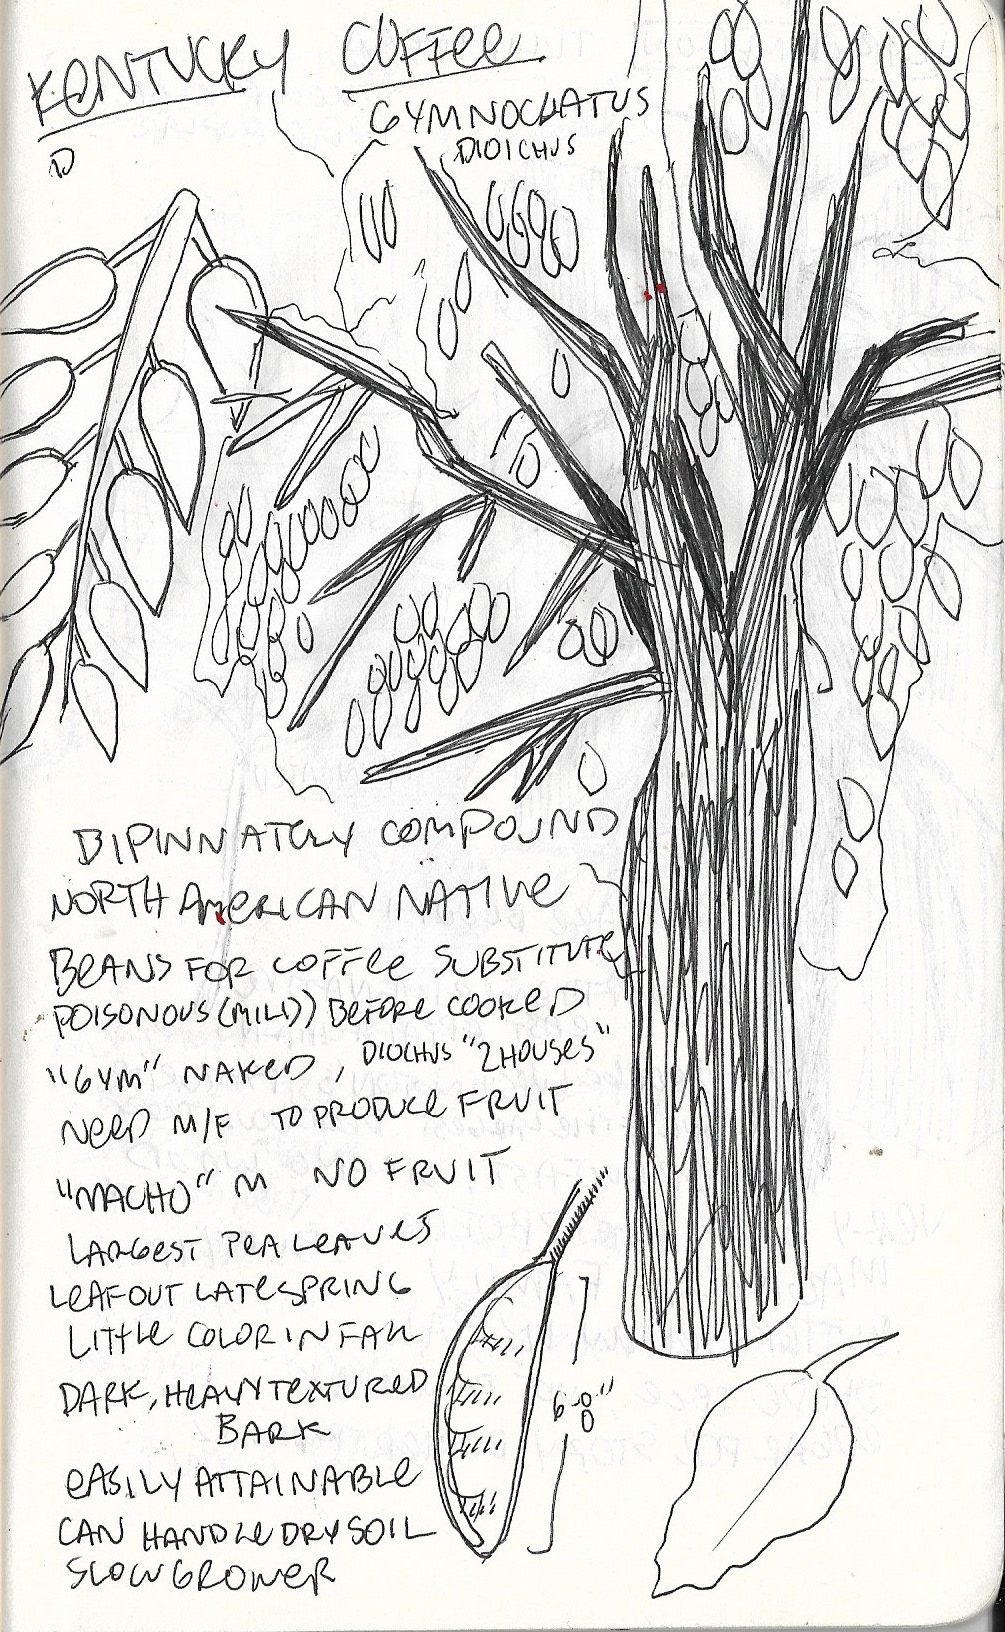 KENTUCKY COFFEE
GYMNOCHATUS
DIOICHUS
D
BIPINNATELY COMPOUND
NORTH AMERICAN NATIVE
BEANS FOR COFFEE SUBSTITUTE
POISONOUS (MILD) BEFORE COOKED
"GYM" NAKED, DIOCHUS "2 HOUSES"
NEED M/F TO PRODUCE FRUIT
"MACHO" M NO FRUIT
LARGEST PEA LEAVES
LEAFOUT LATE SPRING
LITTLE COLOR IN FALL
DARK, HEAVY TEXTURED
BARK
EASILY ATTAINABLE
CAN HANDLE DRY SOIL
SLOW GROWER
6-8"